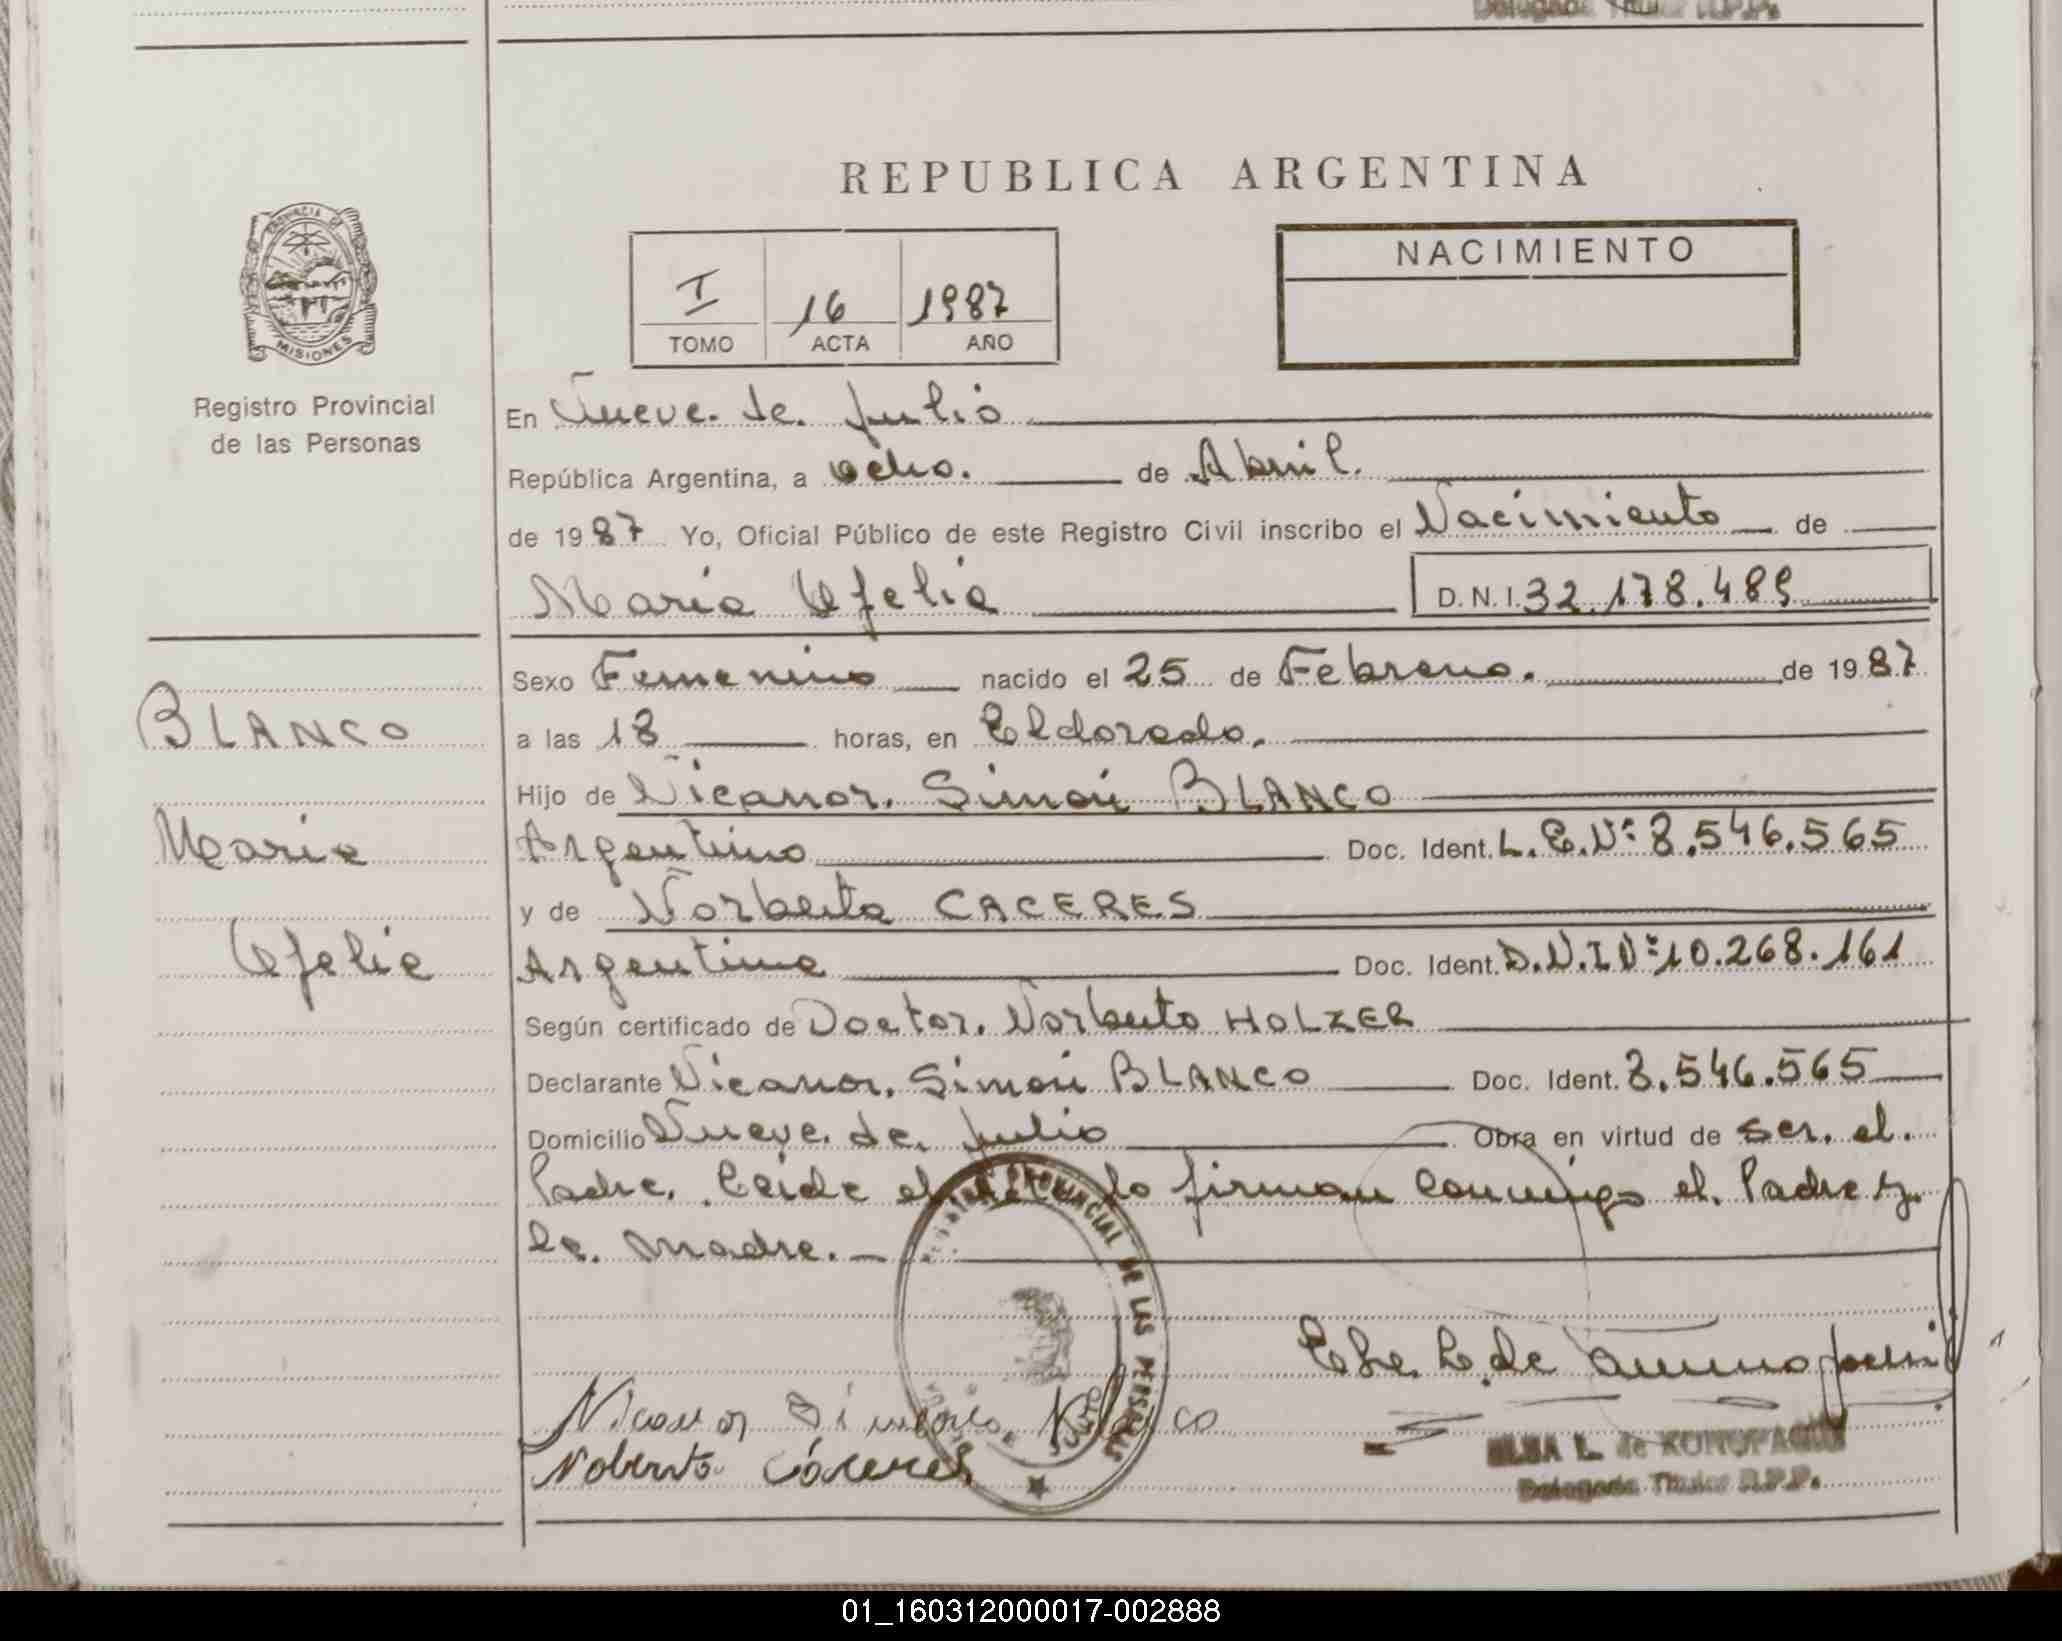 Delegada Titular R.P.P.
REPUBLICA ARGENTINA
PROVINCIA DE
MISIONES
Registro Provincial
de las Personas
I 16 1987
TOMO ACTA AÑO
NACIMIENTO
En Nueve de Julio
República Argentina, a ocho. de Abril.
de 1987 Yo, Oficial Público de este Registro Civil inscribo el Nacimiento de
Maria Ofelia D.N.I. 32.178.489
BLANCO
Maria
Ofelia
Sexo Femenino nacido el 25 de Febrero. de 1987
a las 18 horas, en Eldorado.
Hijo de Nicanor. Simón BLANCO
Argentino Doc. Ident. L.E.Nº 8.546.565
y de Norberta CACERES
Argentina Doc. Ident. D.N.I Nº 10.268.161
Según certificado de Doctor. Norberto HOLZER
Declarante Nicanor. Simón BLANCO Doc. Ident. 8.546.565
Domicilio Nueve. de. Julio Obra en virtud de ser. el.
Padre. Leida el Acta lo firman conmigo el. Padre y.
la. Madre.
REGISTRO PROVINCIAL DE LAS PERSONAS
Nicanor Simeon Blanco
Noberta Cáceres
ELSA L. de KONOPACKI
Delegada Titular R.P.P.
01_160312000017-002888